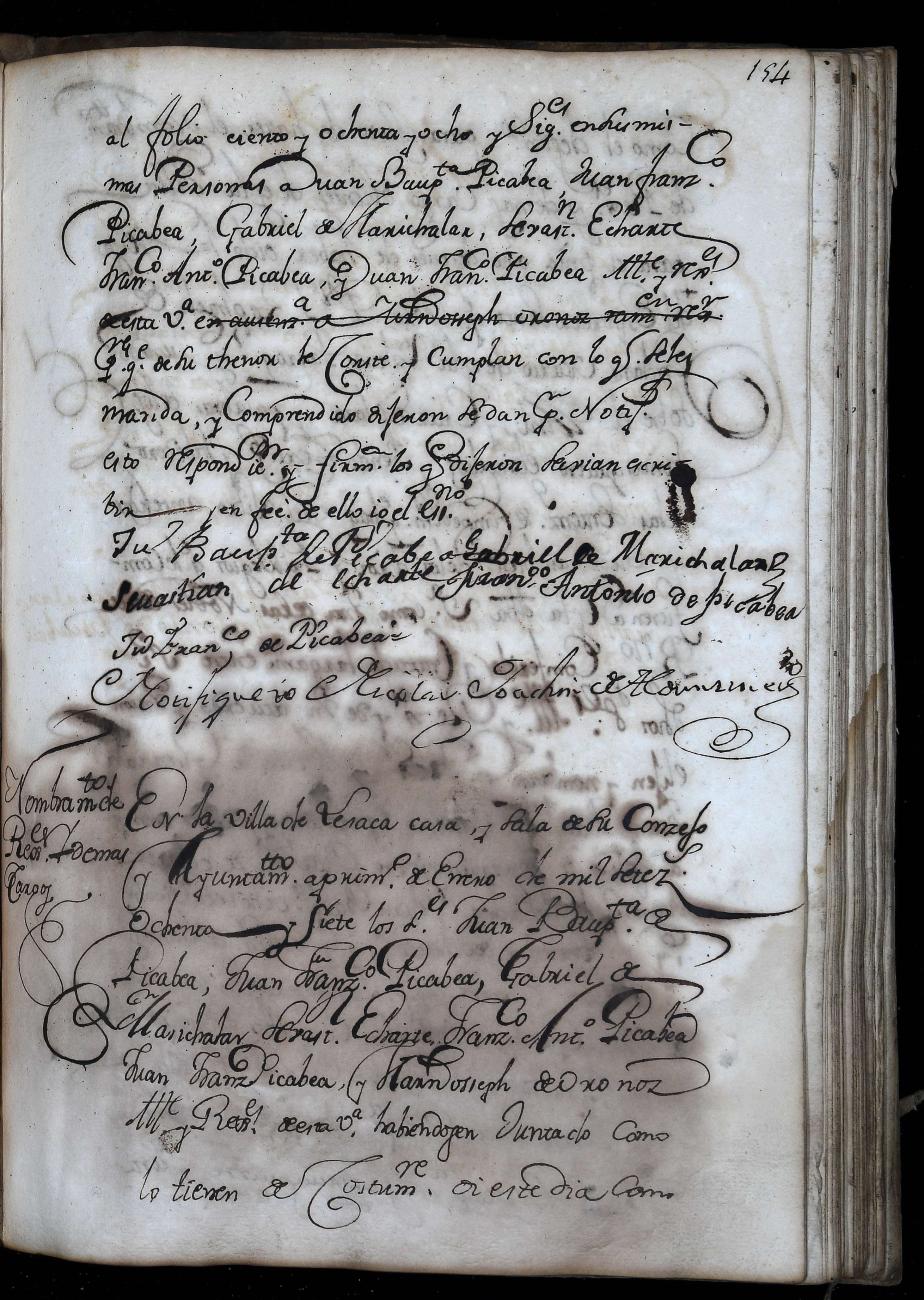 194
al folio ciento y ochenta y ocho y Sig.es en sus mis-
mas Personas a Juan Baup.ta Picabea, Juan franz.co
Picabea, Gabriel de Marichalar, Sevast.n Echarte
Fran.co Ant.o Picabea, y Juan Fran.co Picabea Alld.e y rex.es
de esta V.a en ausenz.a a Marn Josseph oronoz tam.en rex.r
p.r q.e de su thenor les Conste y Cumplan con lo q.e se les
manda, y Comprendido dijeron se dan p.r Notif.s
esto respondie.n y firm.n los q.e dijeron savian escri-
bir y en fee de ello io el ess.no
Ju.n Baup.ta de Picabea Gabriel de Marichalar
Sevastian de Echarte Fran.co Antonio de picabea
Ju.n Fran.co de Picabea
Notifique io Nicolas Joachin de
Nombram.tos de
Rex.es y demas
Cargos
En la Villa de Lesaca casa, y Sala de su Conzejo
y Ayuntam.tto a prim.o de Enero de mil setez.s
Ochenta y siete los S.es Juan Baup.ta de
Picabea, Juan Franz.co Picabea, Gabriel de
Marichalar Sevast.n Echarte, Franz.co Ant.o Picabea
Juan Franz.co Picabea, y Marn Josseph de Oronoz
Alld.e y Rex.es de esta V.a habiendosen Juntado Como
lo tienen de Costum.re oi este dia Como